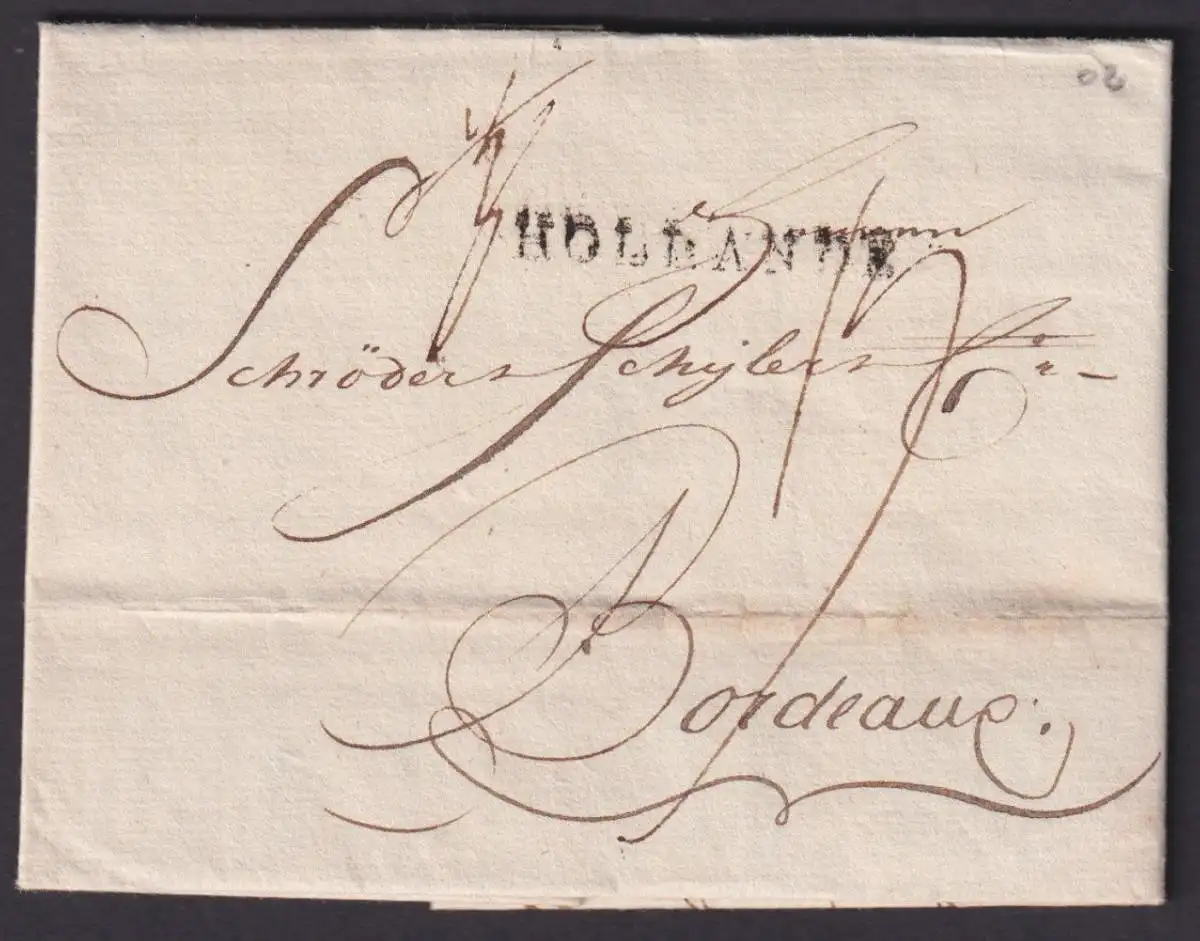 02
HOLLANDE
Schröders Schÿlers & Co.
Bordeaux.